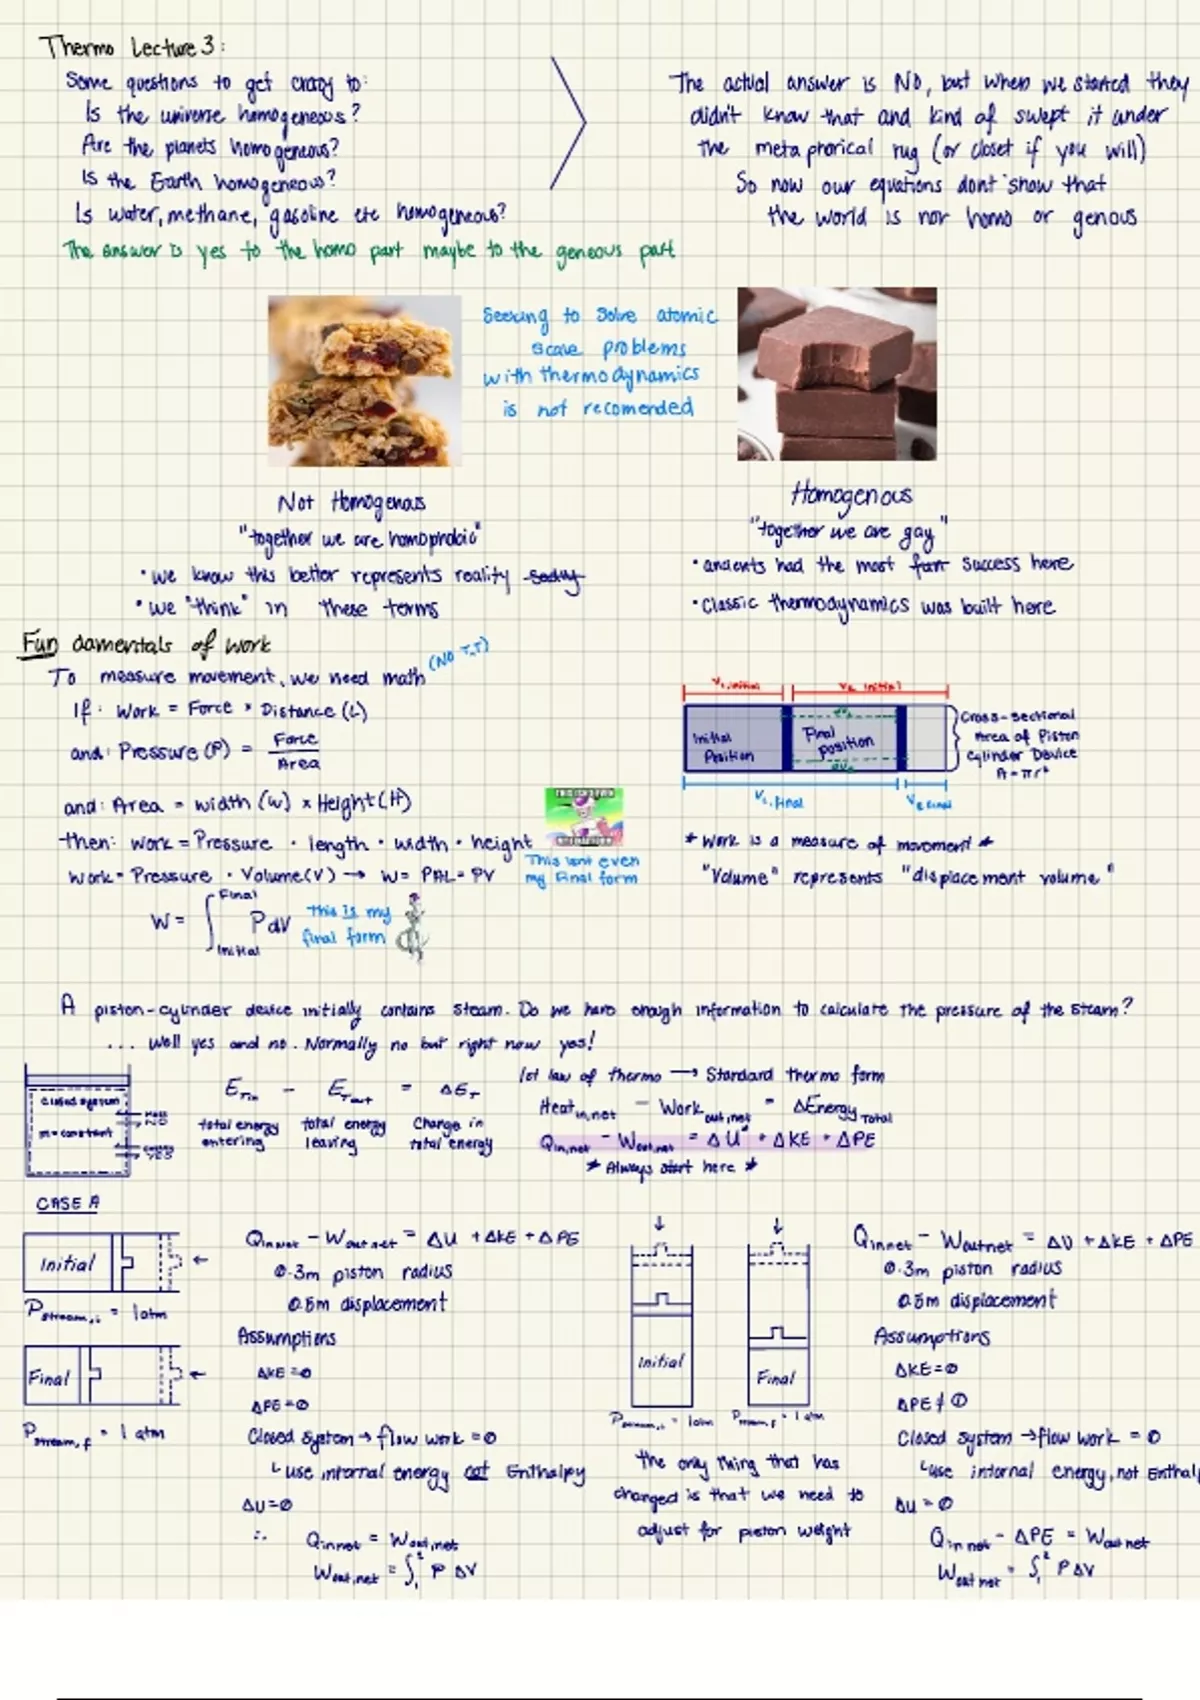 Thermo Lecture 3:
Some questions to get crazy to:
Is the universe homogeneous?
Are the planets homogeneous?
Is the Earth homogeneous?
Is water, methane, gasoline etc homogeneous?
The answer is yes to the homo part maybe to the geneous part
The actual answer is No, but when we started they
didn't know that and kind of swept it under
the metaphorical rug (or closet if you will)
So now our equations dont show that
the world is nor homo or genous
Seeking to solve atomic
scale problems
with thermodynamics
is not recomended
Not Homogenous
"together we are homophobic"
• we know this better represents reality sadly
• we "think" in these terms
Homogenous
"together we are gay"
• ancients had the most fun success here
• Classic thermodynamics was built here
Fundamentals of work
To measure movement, we need math (NO T.T)
If: Work = Force * Distance (L)
and: Pressure (P) = Force / Area
and: Area = width (w) x Height (H)
then: work = Pressure · length · width · height
Work = Pressure · Volume (V) → W = PAL = PV
This isnt even
my Final form
W = ∫ Initial Final PdV
this is my
final form
V1, initial
V2 initial
Initial
Position
Final
position
V1, final
V2 final
Cross-sectional
Area of Piston
Cylinder Device
A = πr²
* Work is a measure of movement *
"Volume" represents "displacement volume"
A piston-cylinder device initially contains steam. Do we have enough information to calculate the pressure of the steam?
... Well yes and no. Normally no but right now yes!
closed system
m = constant
Mass
NO
energy
YES
ET in - ET out = ΔET
total energy
entering
total energy
leaving
Change in
total energy
1st law of thermo → Standard thermo form
Heat in,net - Work out,net = ΔEnergy Total
Qin,net - Wout,net = ΔU + ΔKE + ΔPE
* Always start here *
CASE A
Initial
Pstream,i = 1 atm
Final
Pstream,f = 1 atm
Qinnet - Woutnet = ΔU + ΔKE + ΔPE
0.3m piston radius
0.5m displacement
Assumptions
ΔKE = 0
ΔPE = 0
Closed system → flow work = 0
↳ use internal energy not Enthalpy
ΔU = 0
∴ Qinnet = Wout,net
Wout,net = ∫₁² P ΔV
Initial
Final
Pstream,i = 1 atm
Pstream,f = 1 atm
the only thing that has
changed is that we need to
adjust for piston weight
Qinnet - Woutnet = ΔU + ΔKE + ΔPE
0.3m piston radius
0.5m displacement
Assumptions
ΔKE = 0
ΔPE ≠ 0
Closed system → flow work = 0
↳ use internal energy, not Enthal
ΔU = 0
Qin net - ΔPE = Woutnet
Woutnet = ∫₁² P ΔV